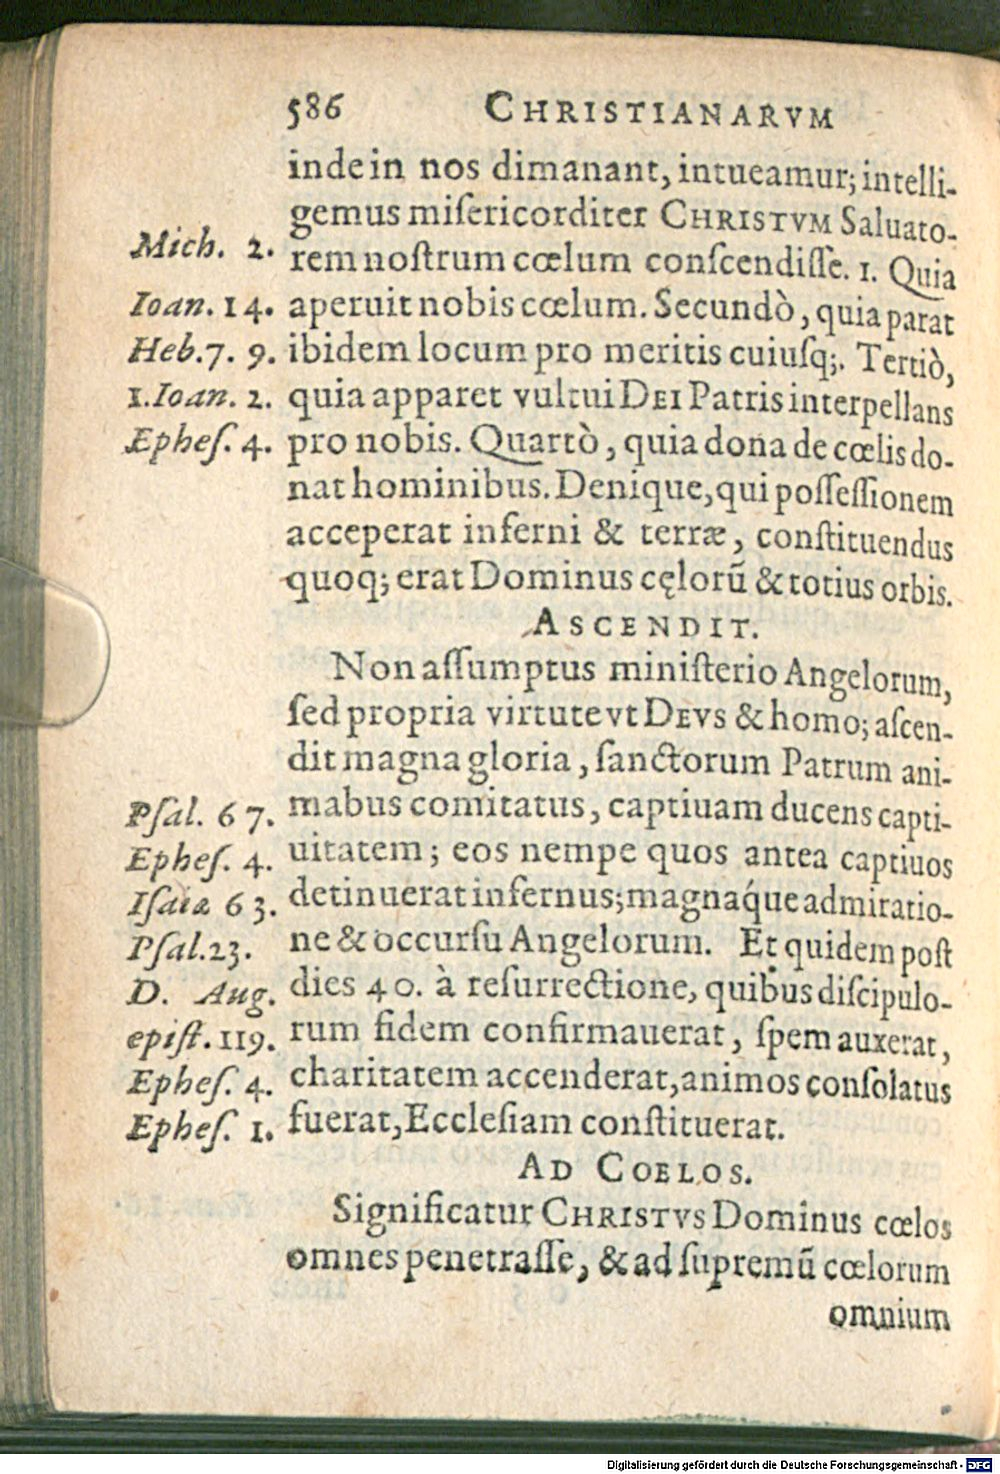 586 CHRISTIANARVM
inde in nos dimanant, intueamur; intelli-
gemus miſericorditer CHRISTVM Saluato-
Mich. 2. rem noſtrum cœlum conſcendiſſe. 1. Quia
Ioan. 14. aperuit nobis cœlum. Secundò, quia parat
Heb. 7. 9. ibidem locum pro meritis cuiuſq;. Tertiò,
1. Ioan. 2. quia apparet vultui DEI Patris interpellans
Epheſ. 4. pro nobis. Quartò, quia dona de cœlis do-
nat hominibus. Denique, qui poſſeſſionem
acceperat inferni & terræ, conſtituendus
quoq; erat Dominus cęlorũ & totius orbis.
ASCENDIT.
Non aſſumptus miniſterio Angelorum,
ſed propria virtute vt DEVS & homo; aſcen-
dit magna gloria, ſanctorum Patrum ani-
Pſal. 67. mabus comitatus, captiuam ducens capti-
Epheſ. 4. uitatem; eos nempe quos antea captiuos
Iſaiæ 63. detinuerat infernus; magnaq́ue admiratio-
Pſal. 23. ne & occurſu Angelorum. Et quidem poſt
D. Aug. dies 40. à reſurrectione, quibus diſcipulo-
epiſt. 119. rum fidem confirmauerat, ſpem auxerat,
Epheſ. 4. charitatem accenderat, animos conſolatus
Epheſ. 1. fuerat, Eccleſiam conſtituerat.
AD COELOS.
Significatur CHRISTVS Dominus cœlos
omnes penetraſſe, & ad ſupremũ cœlorum
omnium
Digitalisierung gefördert durch die Deutsche Forschungsgemeinschaft - DFG